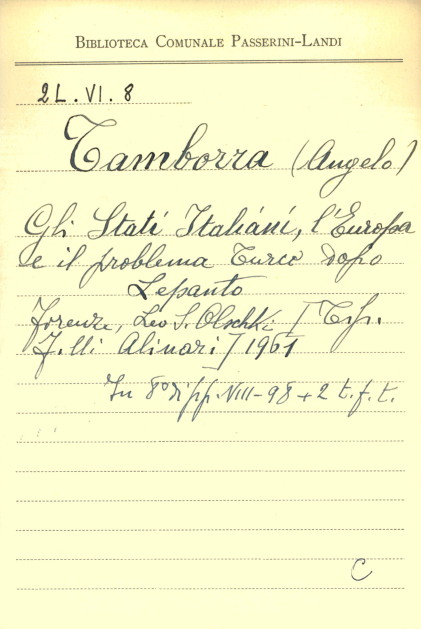 BIBLIOTECA COMUNALE PASSERINI-LANDI
2L.VI.8
Tamborra (Angelo)
Gli Stati Italiani, l'Europa
e il problema Turco dopo
Lepanto
Firenze, Leo S. Olschki [Tip.
F.lli Alinari] 1961
In 8° di pp. VIII-98 + 2 t.f.t.
C